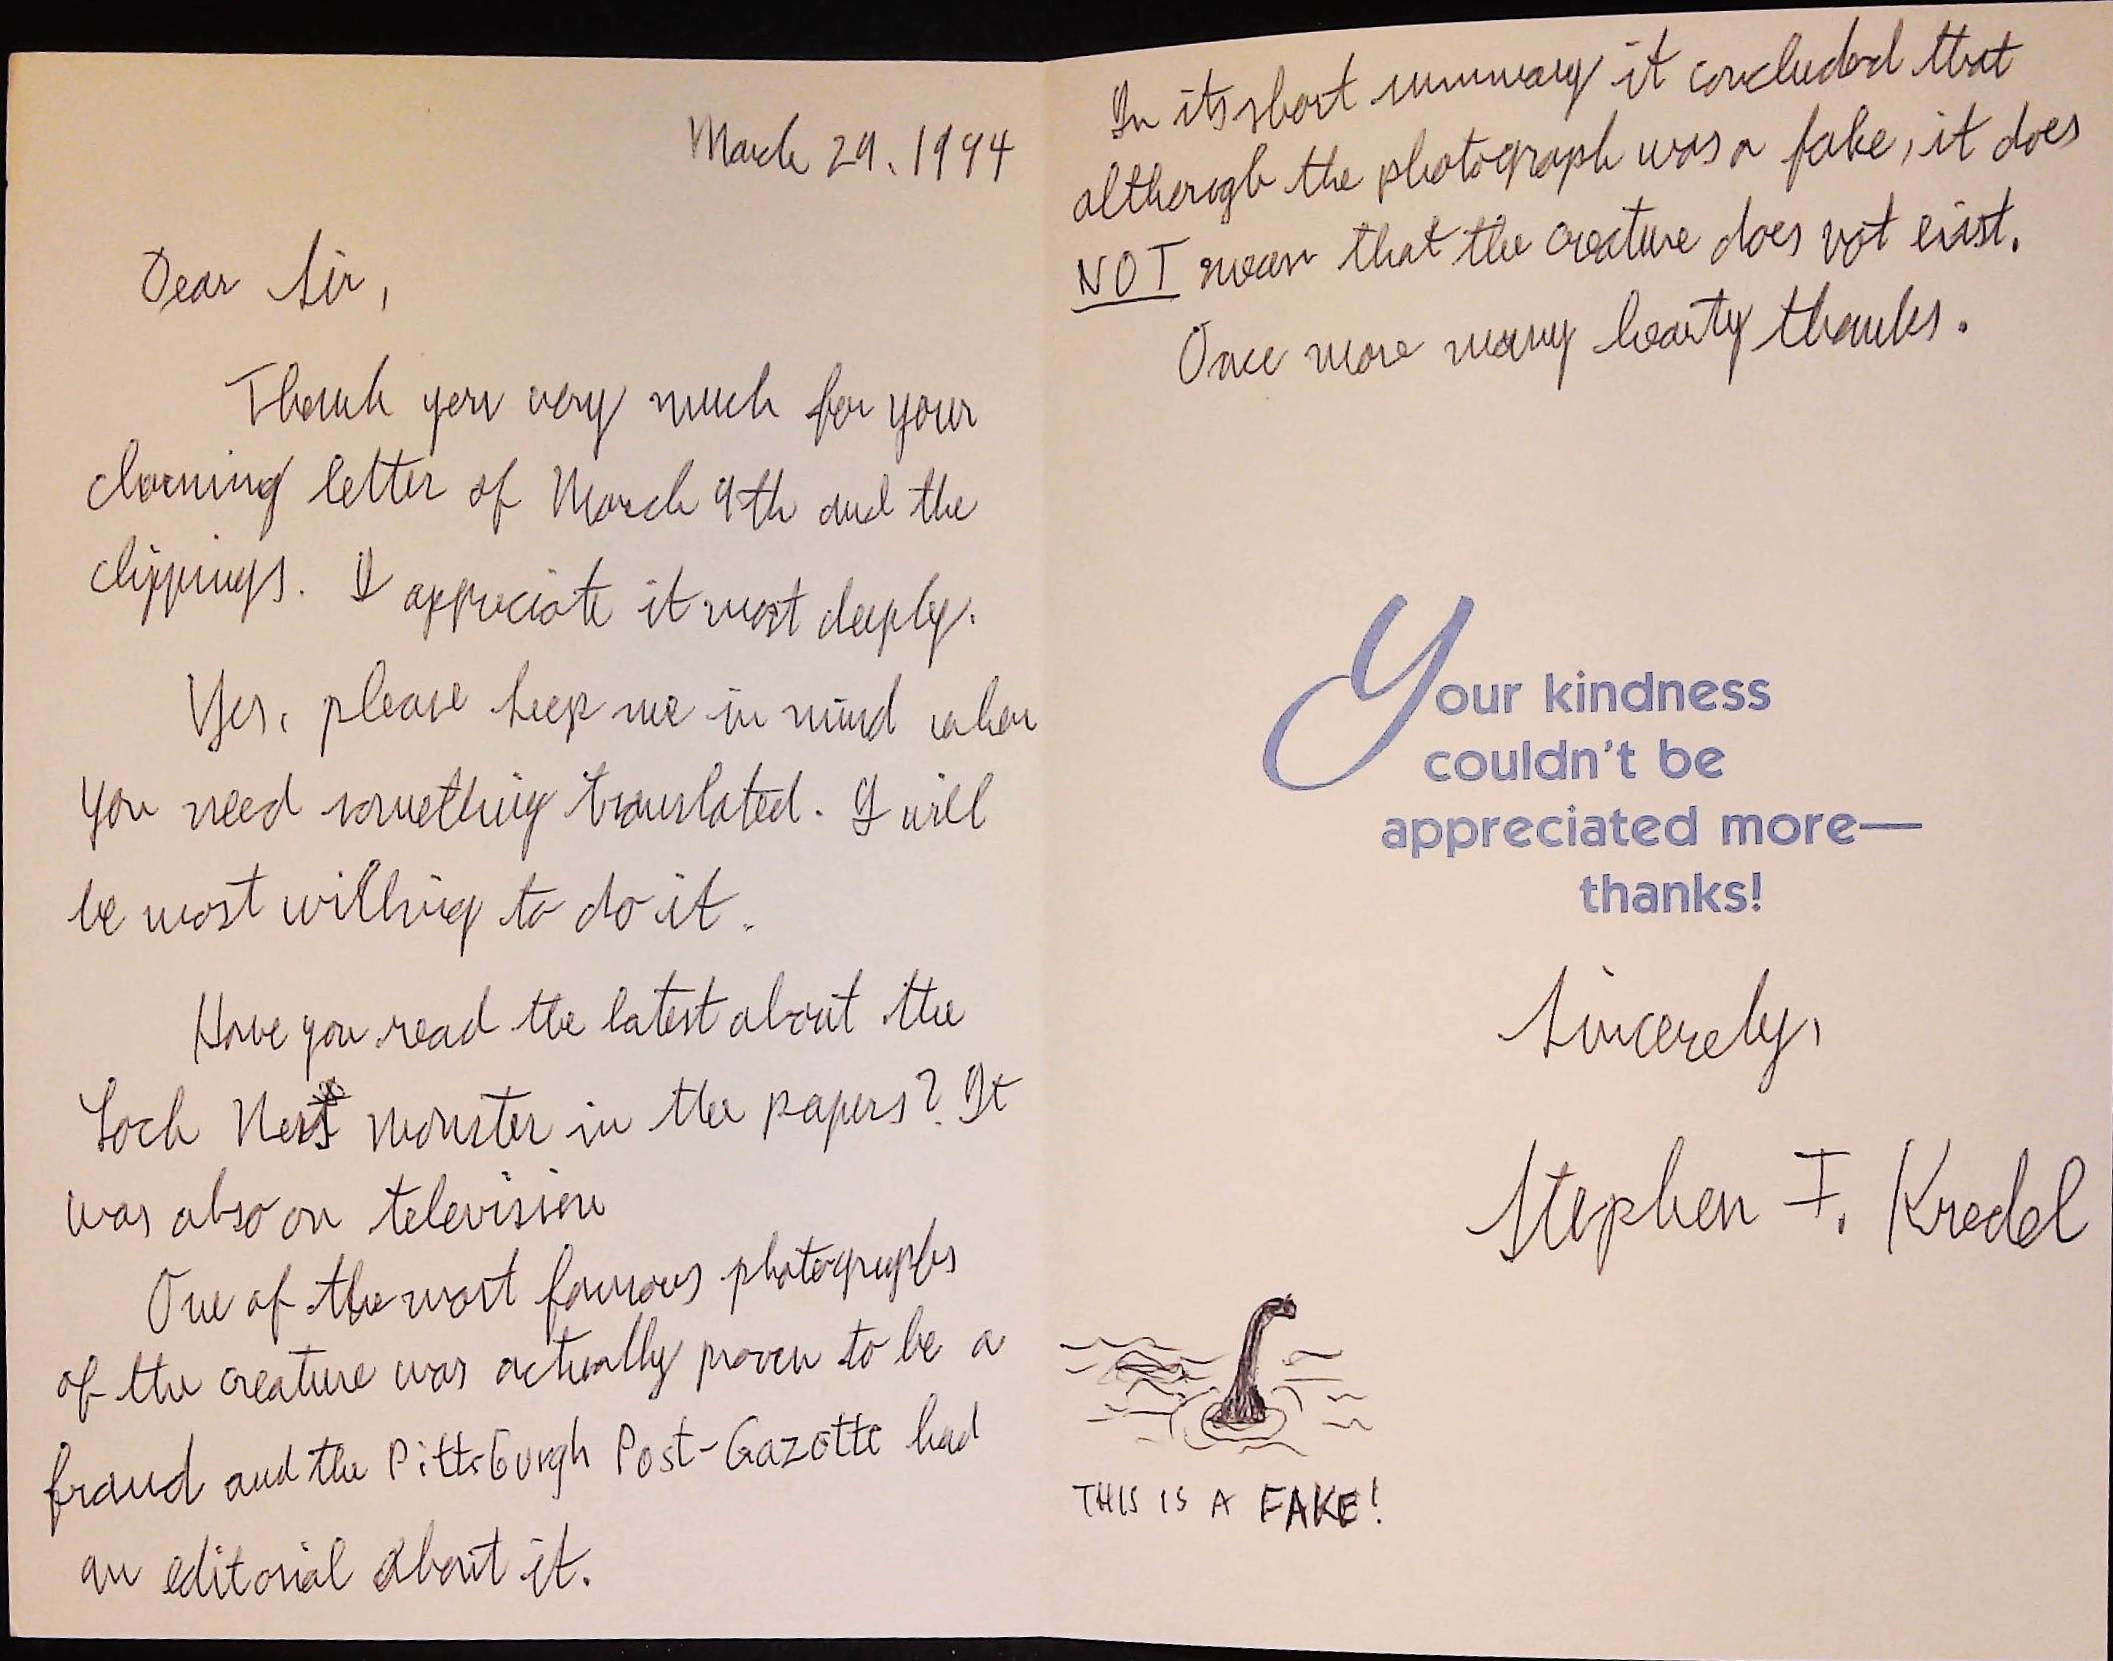 March 29, 1994
Dear Sir,
Thank you very much for your
charming letter of March 9th and the
clippings. I appreciate it most deeply.
Yes, please keep me in mind when
you need something translated. I will
be most willing to do it.
Have you read the latest about the
Loch Ness monster in the papers? It
was also on television
One of the most famous photographs
of the creature was actually proven to be a
fraud and the Pittsburgh Post-Gazette had
an editorial about it.
In its short summary it concluded that
although the photograph was a fake, it does
NOT mean that the creature does not exist.
Once more many hearty thanks.
Your kindness
couldn't be
appreciated more—
thanks!
Sincerely,
Stephen F. Kredel
THIS IS A FAKE!